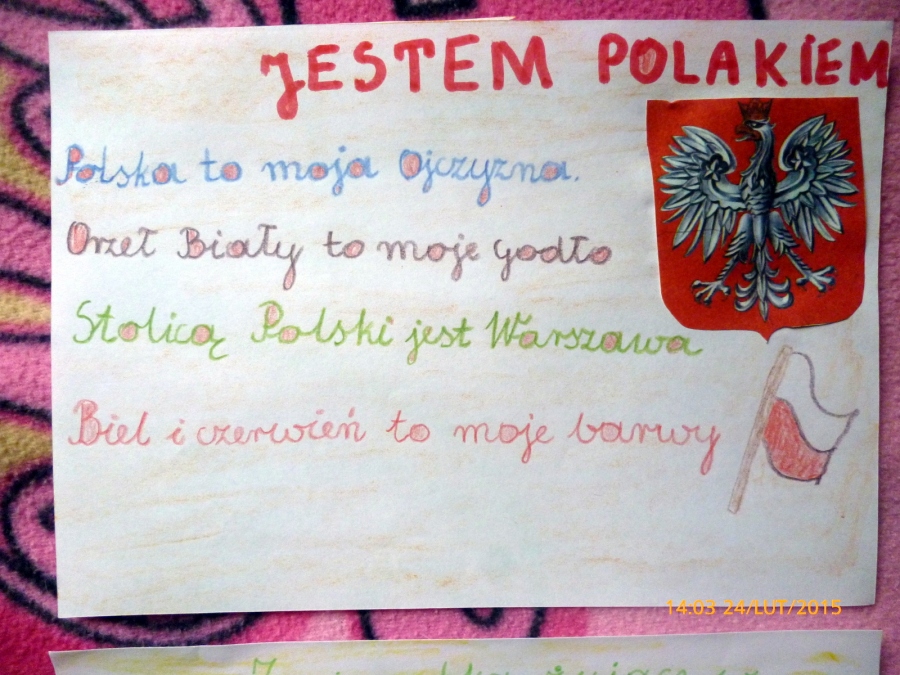 JESTEM POLAKIEM
Polska to moja Ojczyzna.
Orzeł Biały to moje godło
Stolicą Polski jest Warszawa
Biel i czerwień to moje barwy
14.03 24/LUT/2015